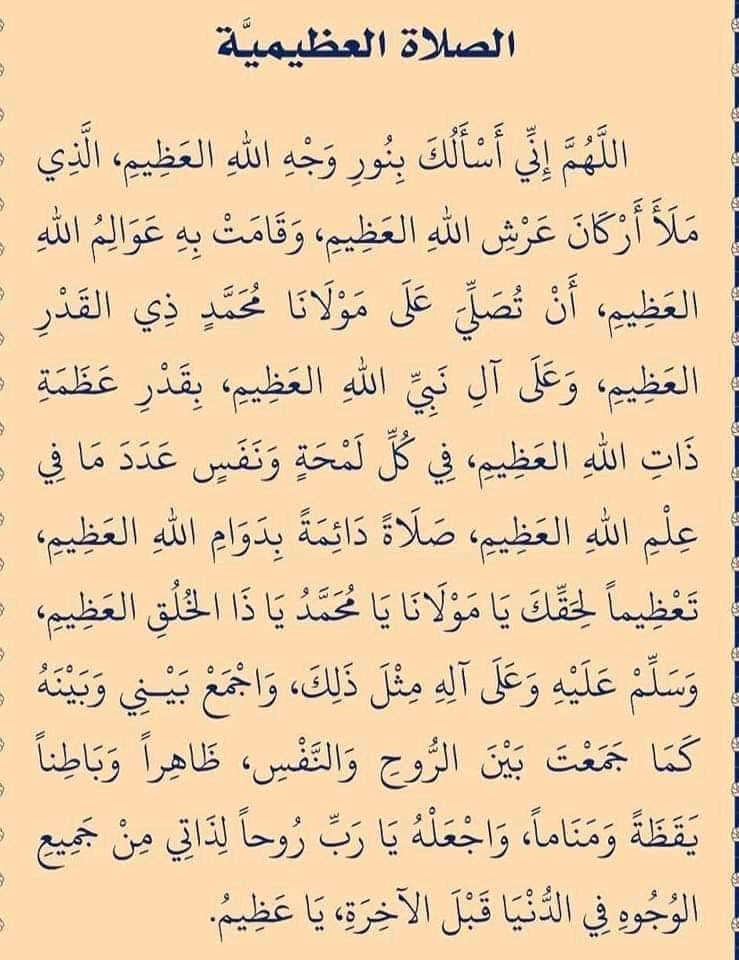 الصلاة العظيميَّة
اللَّهُمَّ إِنِّي أَسْأَلُكَ بِنُورِ وَجْهِ اللهِ العَظِيمِ، الَّذِي
مَلَأَ أَرْكَانَ عَرْشِ اللهِ العَظِيمِ، وَقَامَتْ بِهِ عَوَالِمُ اللهِ
العَظِيمِ، أَنْ تُصَلِّيَ عَلَى مَوْلَانَا مُحَمَّدٍ ذِي القَدْرِ
العَظِيمِ، وَعَلَى آلِ نَبِيِّ اللهِ العَظِيمِ، بِقَدْرِ عَظَمَةِ
ذَاتِ اللهِ العَظِيمِ، فِي كُلِّ لَمْحَةٍ وَنَفَسٍ عَدَدَ مَا فِي
عِلْمِ اللهِ العَظِيمِ، صَلَاةً دَائِمَةً بِدَوَامِ اللهِ العَظِيمِ،
تَعْظِيماً لِحَقِّكَ يَا مَوْلَانَا يَا مُحَمَّدُ يَا ذَا الخُلُقِ العَظِيمِ،
وَسَلِّمْ عَلَيْهِ وَعَلَى آلِهِ مِثْلَ ذَلِكَ، وَاجْمَعْ بَيْـنِي وَبَيْنَهُ
كَمَا جَمَعْتَ بَيْنَ الرُّوحِ وَالنَّفْسِ، ظَاهِراً وَبَاطِناً
يَقَظَةً وَمَنَاماً، وَاجْعَلْهُ يَا رَبِّ رُوحاً لِذَاتِي مِنْ جَمِيعِ
الوُجُوهِ فِي الدُّنْيَا قَبْلَ الآخِرَةِ، يَا عَظِيمُ.